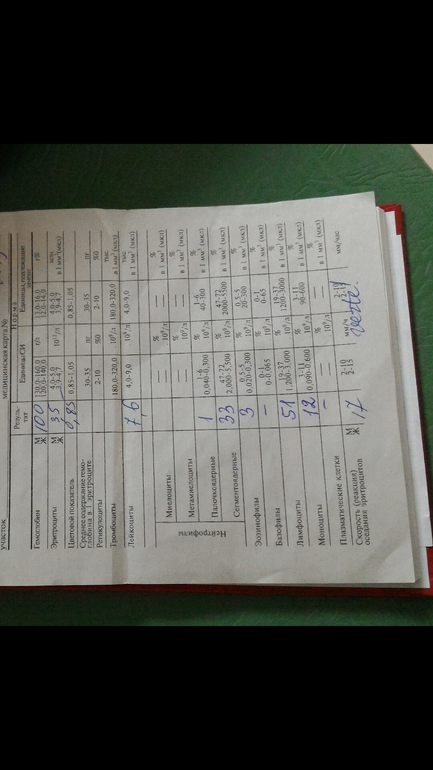 участок
медицинская карта №
Резуль-тат
Н о р м а
Единицы СИ
Единицы, подлежащие
Гемоглобин М Ж 100 130,0-160,0 120,0-140,0 г/л 13,0-16,0 12,0-14,0 г%
Эритроциты М Ж 3,5 4,0-5,0 3,9-4,7 10¹²/л 4,0-5,0 3,9-4,7 млн. в 1 мм³ (мкл)
Цветовой показатель 0,85 0,85-1,05 0,85-1,05
Среднее содержание гемо-
глобина в 1 эритроците 30-35 пг 30-35 пг
Ретикулоциты 2-10 %0 2-10 %0
Тромбоциты 180,0-320,0 10⁹/л 180,0-320,0 тыс. в 1 мм³ (мкл)
Лейкоциты 7,6 4,0-9,0 10⁹/л 4,0-9,0 тыс. в 1 мм³ (мкл)
Нейтрофилы
Миелоциты — — % 10⁹/л — — % в 1 мм³ (мкл)
Метамиелоциты — — % 10⁹/л — — % в 1 мм³ (мкл)
Палочкоядерные 1 1-6 0,040-0,300 % 10⁹/л 1-6 40-300 % в 1 мм³ (мкл)
Сегментоядерные 33 47-72 2,000-5,500 % 10⁹/л 47-72 2000-5500 % в 1 мм³ (мкл)
Эозинофилы 3 0,5-5 0,020-0,300 % 10⁹/л 0,5-5 20-300 % в 1 мм³ (мкл)
Базофилы – 0-1 0-0,065 % 10⁹/л 0-1 0-65 % в 1 мм³ (мкл)
Лимфоциты 51 19-37 1,200-3,000 % 10⁹/л 19-37 1200-3000 % в 1 мм³ (мкл)
Моноциты 12 3-11 0,090-0,600 % 10⁹/л 3-11 90-600 % в 1 мм³ (мкл)
Плазматические клетки – — — % 10⁹/л — — % в 1 мм³ (мкл)
Скорость (реакция)
оседания эритроцитов М Ж 17 2-10 2-15 мм/ч 2-10 2-15 мм/час
verte.